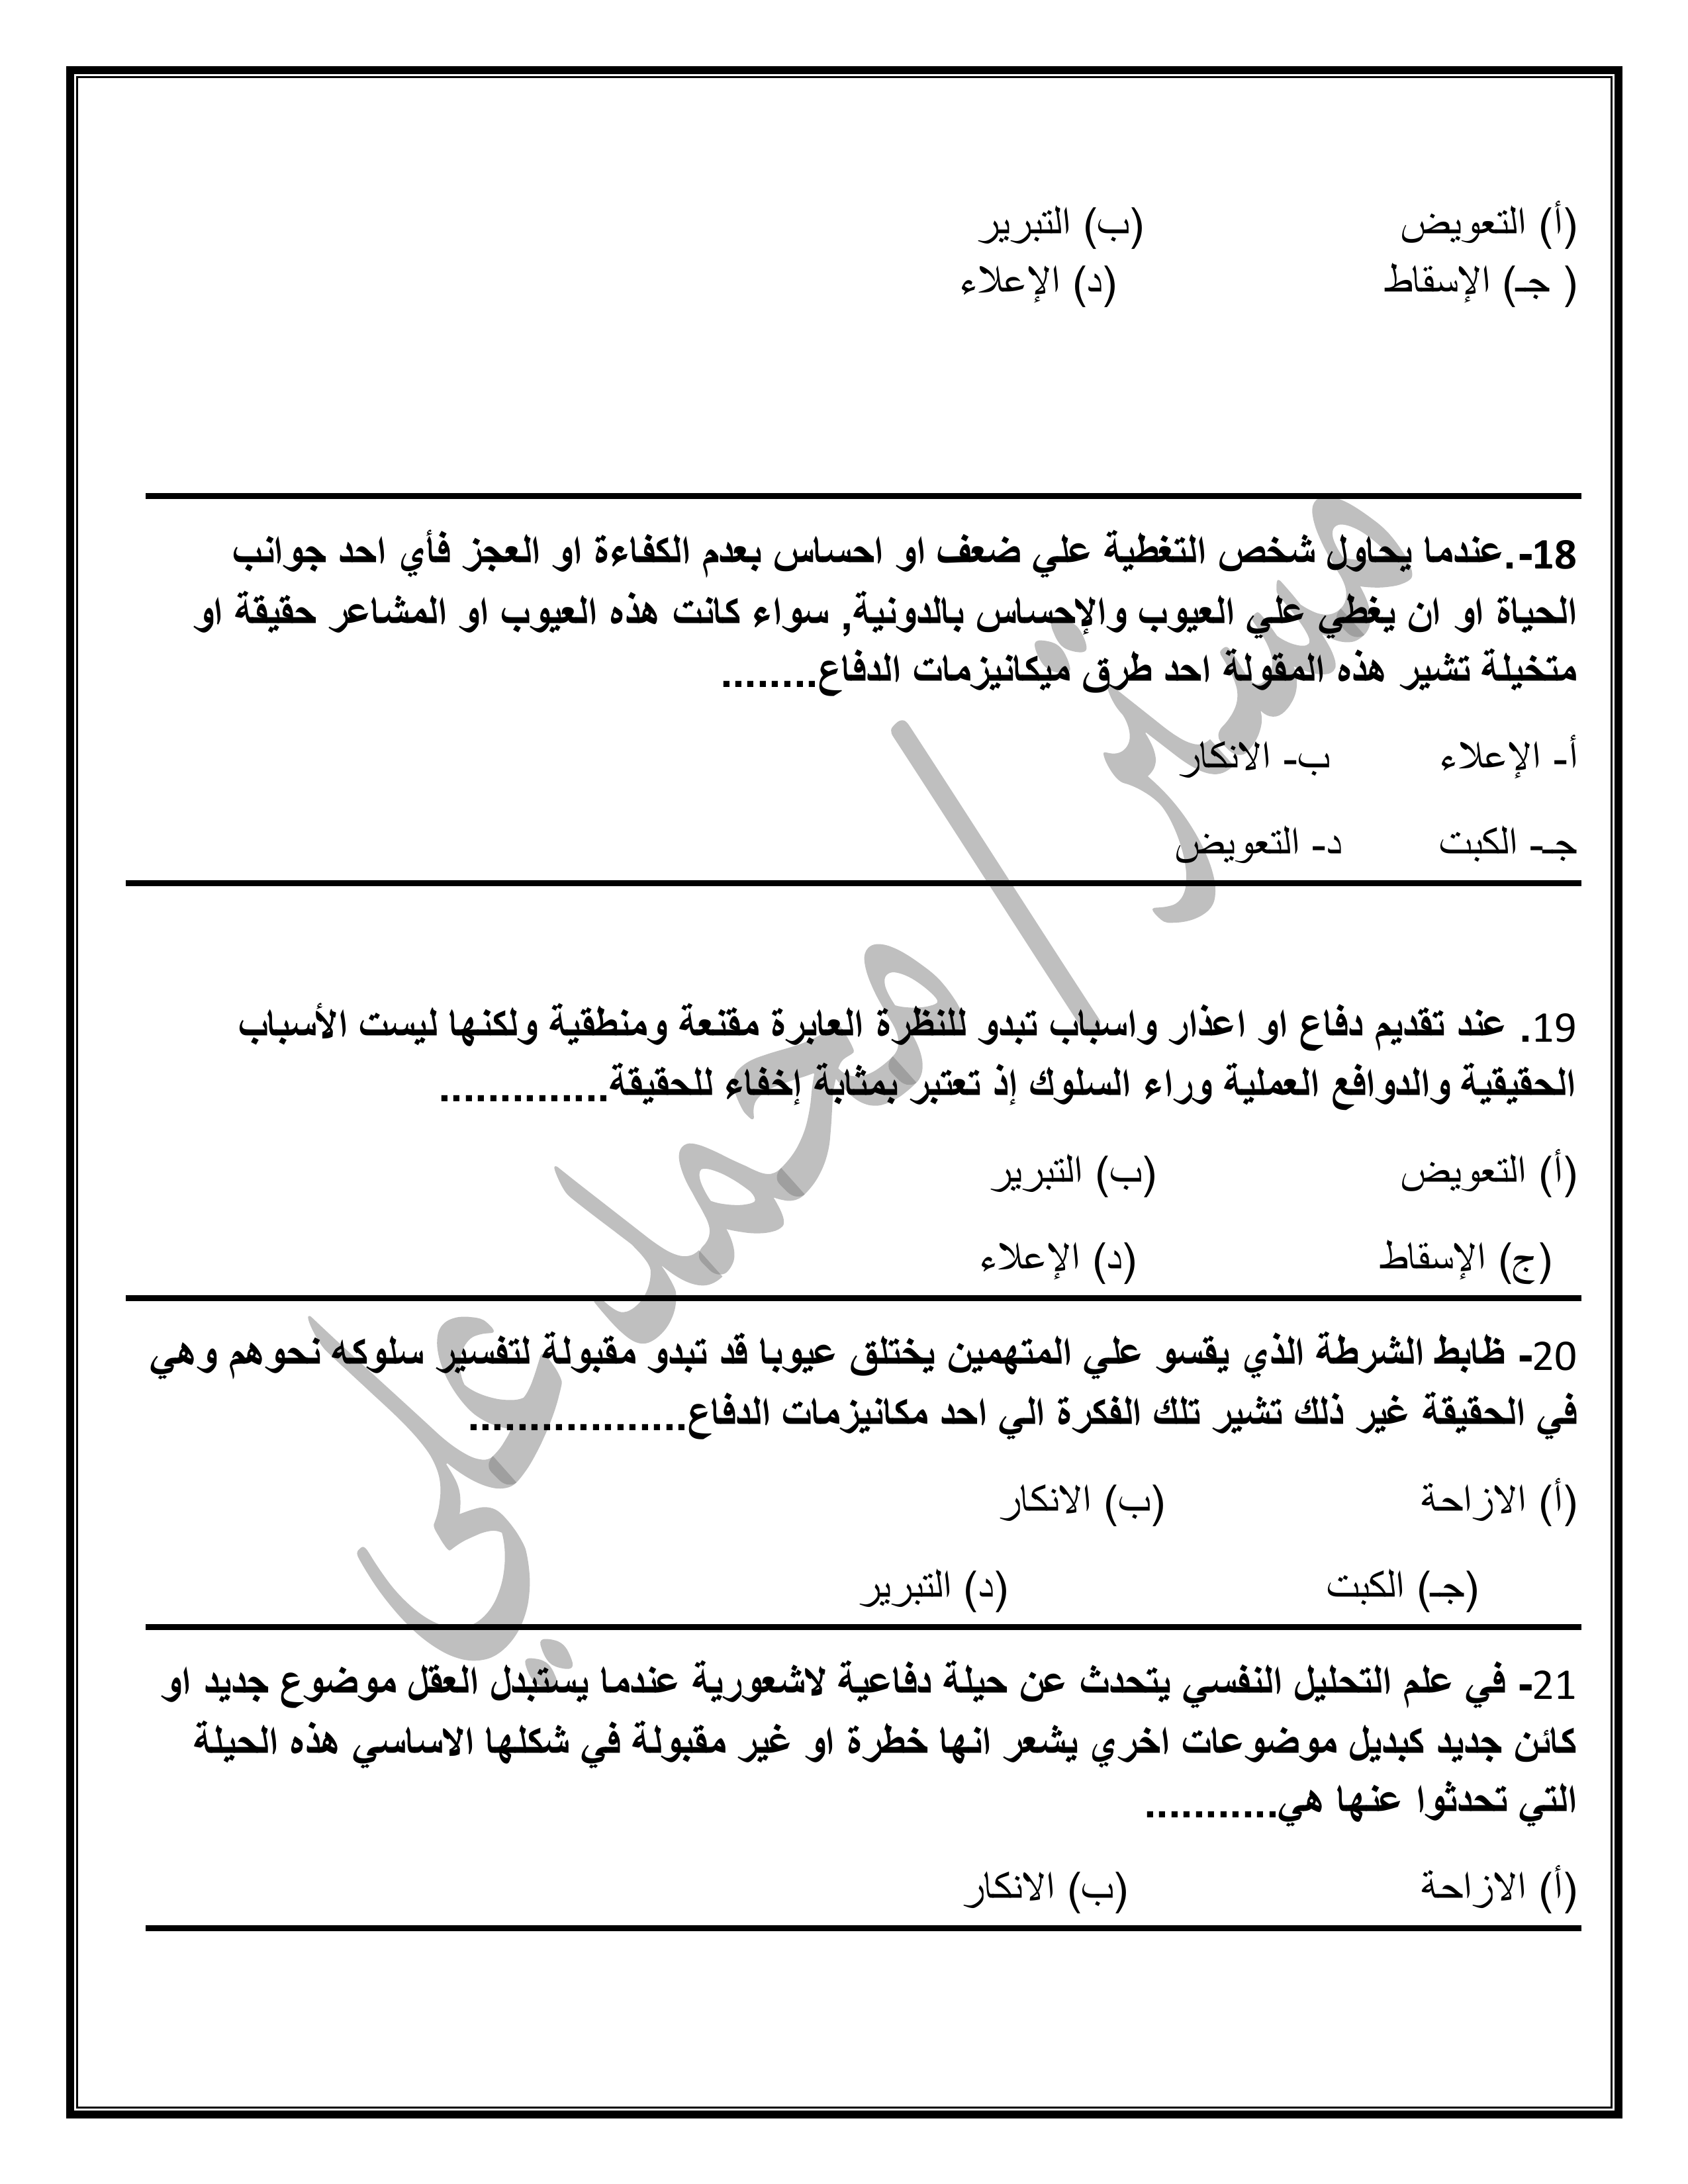 (أ) التعويض (ب) التبرير
( جـ) الإسقاط (د) الإعلاء
18-.عندما يحاول شخص التغطية علي ضعف او احساس بعدم الكفاءة او العجز فأي احد جوانب
الحياة او ان يغطي علي العيوب والإحساس بالدونية, سواء كانت هذه العيوب او المشاعر حقيقة او
متخيلة تشير هذه المقولة احد طرق ميكانيزمات الدفاع........
أ- الإعلاء ب- الانكار
جـ- الكبت د- التعويض
19. عند تقديم دفاع او اعذار واسباب تبدو للنظرة العابرة مقنعة ومنطقية ولكنها ليست الأسباب
الحقيقية والدوافع العملية وراء السلوك إذ تعتبر بمثابة إخفاء للحقيقة..............
(أ) التعويض (ب) التبرير
(ج) الإسقاط (د) الإعلاء
20- ظابط الشرطة الذي يقسو علي المتهمين يختلق عيوبا قد تبدو مقبولة لتفسير سلوكه نحوهم وهي
في الحقيقة غير ذلك تشير تلك الفكرة الي احد مكانيزمات الدفاع..................
(أ) الازاحة (ب) الانكار
(جـ) الكبت (د) التبرير
21- في علم التحليل النفسي يتحدث عن حيلة دفاعية لاشعورية عندما يستبدل العقل موضوع جديد او
كائن جديد كبديل موضوعات اخري يشعر انها خطرة او غير مقبولة في شكلها الاساسي هذه الحيلة
التي تحدثوا عنها هي...........
(أ) الازاحة (ب) الانكار
مستر/محمد علي